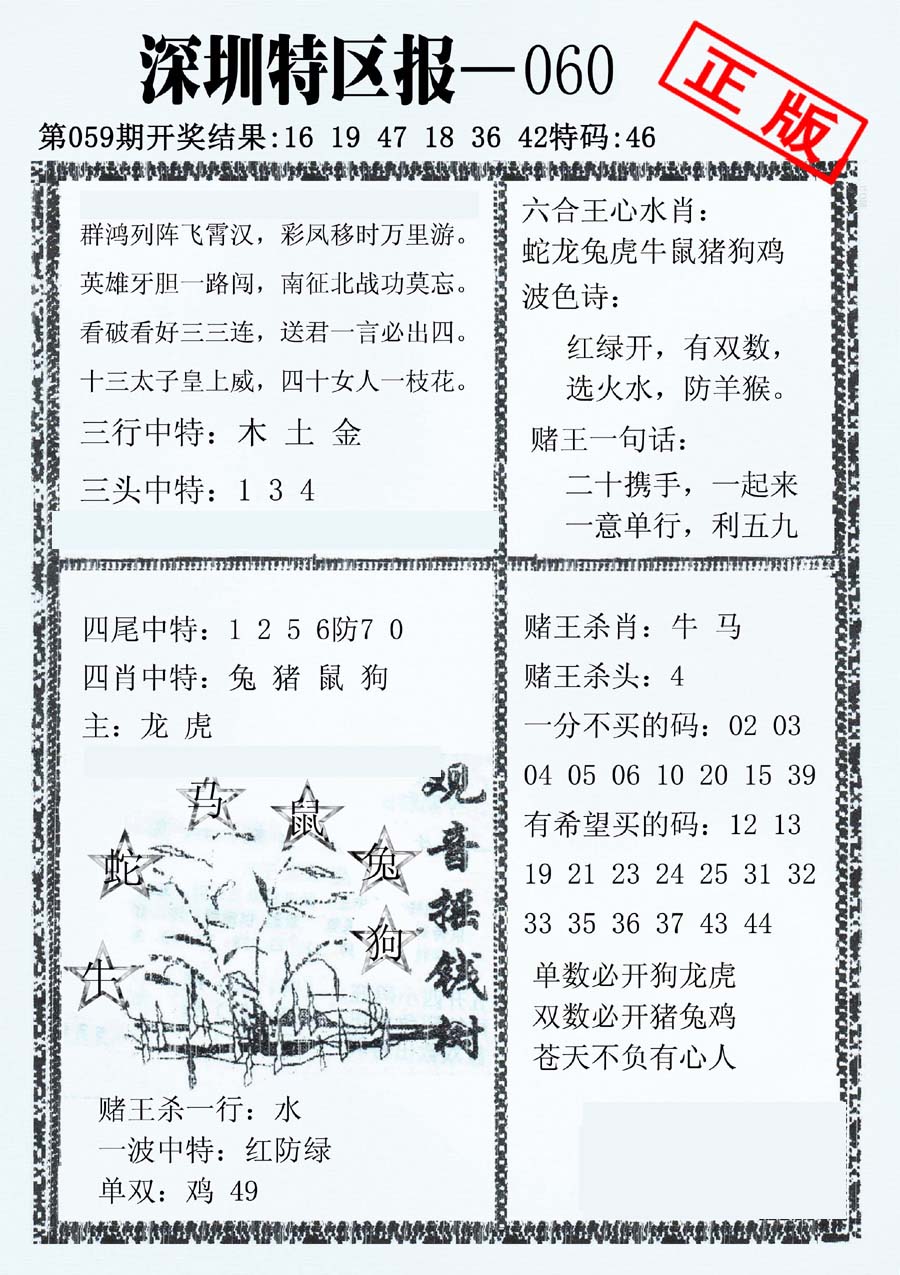 深圳特区报—060
正版
第059期开奖结果:16 19 47 18 36 42特码:46
群鸿列阵飞霄汉，彩凤移时万里游。
英雄牙胆一路闯，南征北战功莫忘。
看破看好三三连，送君一言必出四。
十三太子皇上威，四十女人一枝花。
三行中特：木 土 金
三头中特：1 3 4
六合王心水肖：
蛇龙兔虎牛鼠猪狗鸡
波色诗：
红绿开，有双数，
选火水，防羊猴。
赌王一句话：
二十携手，一起来
一意单行，利五九
四尾中特：1 2 5 6防7 0
四肖中特：兔 猪 鼠 狗
主：龙 虎
马
鼠
蛇
兔
狗
牛
观音摇钱树
赌王杀一行：水
一波中特：红防绿
单双：鸡 49
赌王杀肖：牛 马
赌王杀头：4
一分不买的码：02 03
04 05 06 10 20 15 39
有希望买的码：12 13
19 21 23 24 25 31 32
33 35 36 37 43 44
单数必开狗龙虎
双数必开猪兔鸡
苍天不负有心人